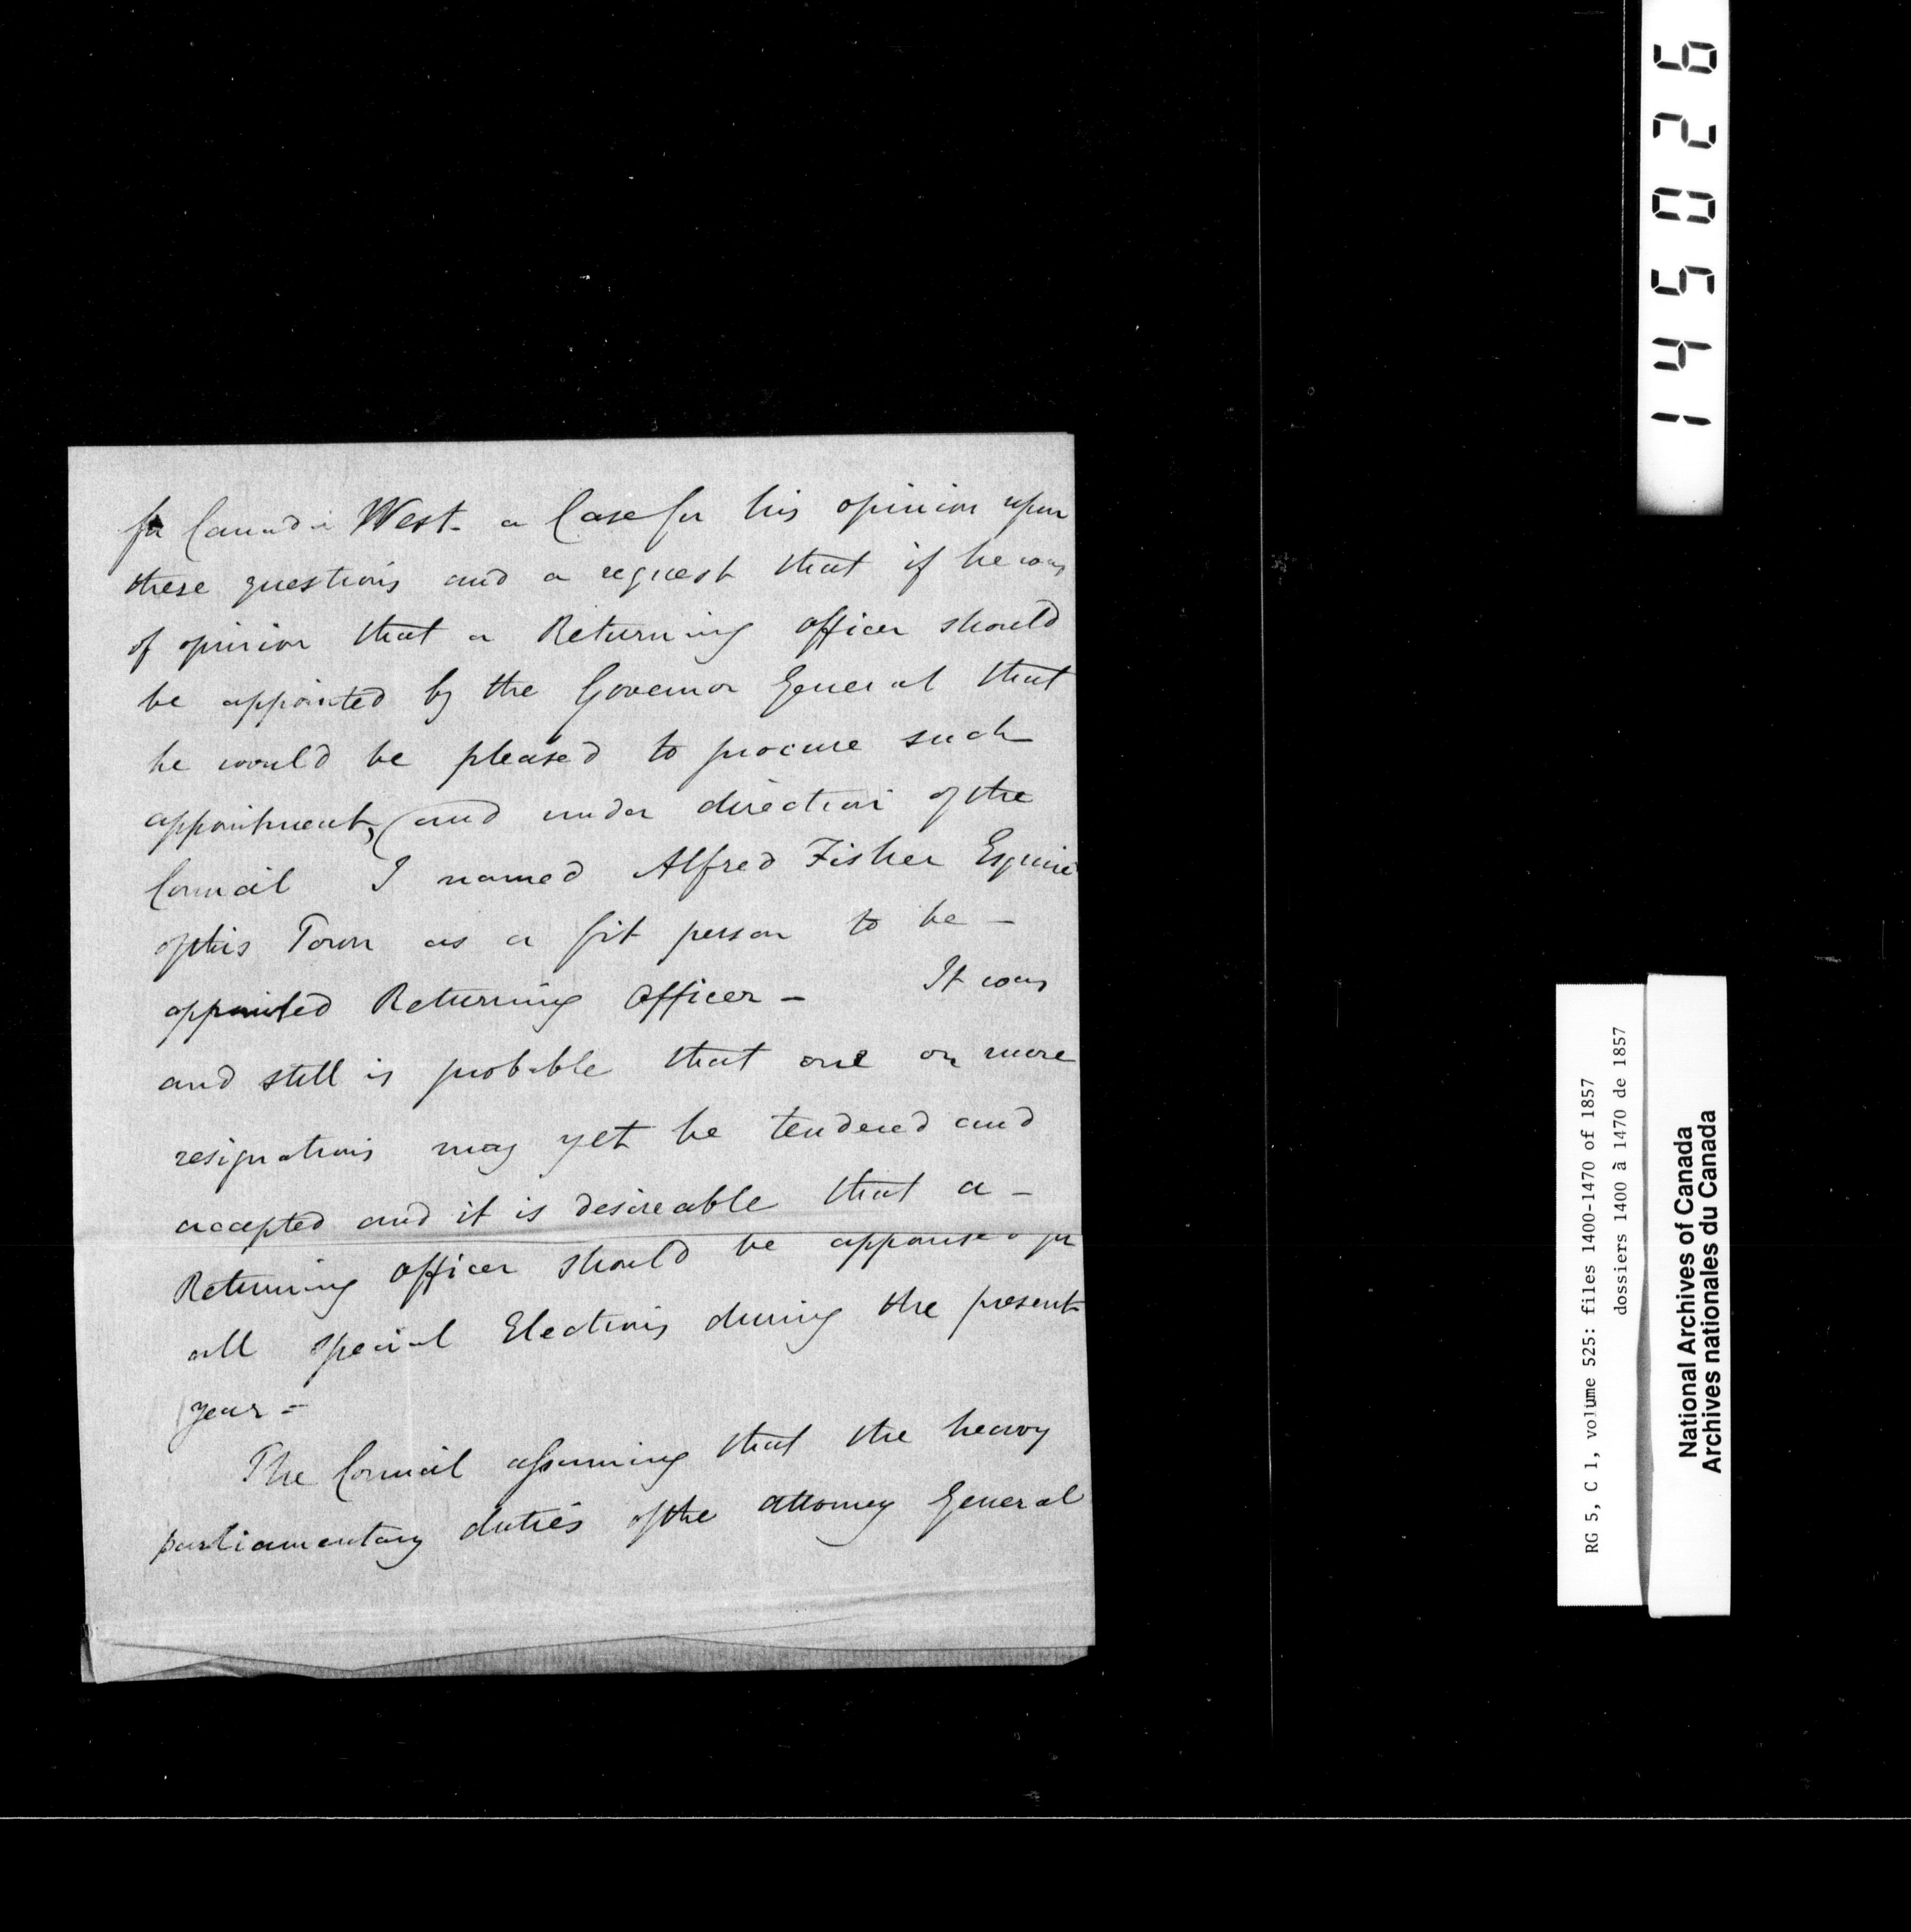 for Canada West - a Case for his opinion upon
these questions and a request that if he was
of opinion that a Returning officer should
be appointed by the Governor General that
he would be pleased to procure such
appointment, (and under direction of the
Council I named Alfred Fisher Esquire
of this Town as a fit person to be -
appointed Returning Officer - It was
and still is probable that one or more
resignations may yet be tendered and
accepted and it is desireable that a -
Returning officer should be appointed for
all special Elections during the present
year -
The Council assuming that the heavy
parliamentary duties of the Attorney General
145026
RG 5, C 1, volume 525: files 1400-1470 of 1857
dossiers 1400 à 1470 de 1857
National Archives of Canada
Archives nationales du Canada